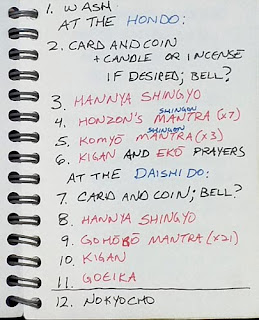 1. WASH
AT THE HONDO:
2. CARD AND COIN
+ CANDLE OR INCENSE
IF DESIRED; BELL?
3. HANNYA SHINGYO
4. HONZON'S SHINGON MANTRA (x7)
5. KOMYŌ SHINGON MANTRA (x3)
6. KIGAN AND EKŌ PRAYERS
AT THE DAISHI DO:
7. CARD AND COIN; BELL?
8. HANNYA SHINGYO
9. GOHŌBŌ MANTRA (x21)
10. KIGAN
11. GOEIKA
12. NOKYOCHO